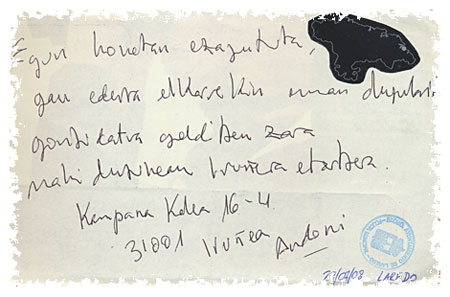 Egun honetan ezagututa,
gau ederra elkarrekin eman
gonbidatua gelditzen zara
nahi duzunean Iruñera etortzera.
Kanpana Kalea 16-4
31001 Iruñea Andoni
LAREDO